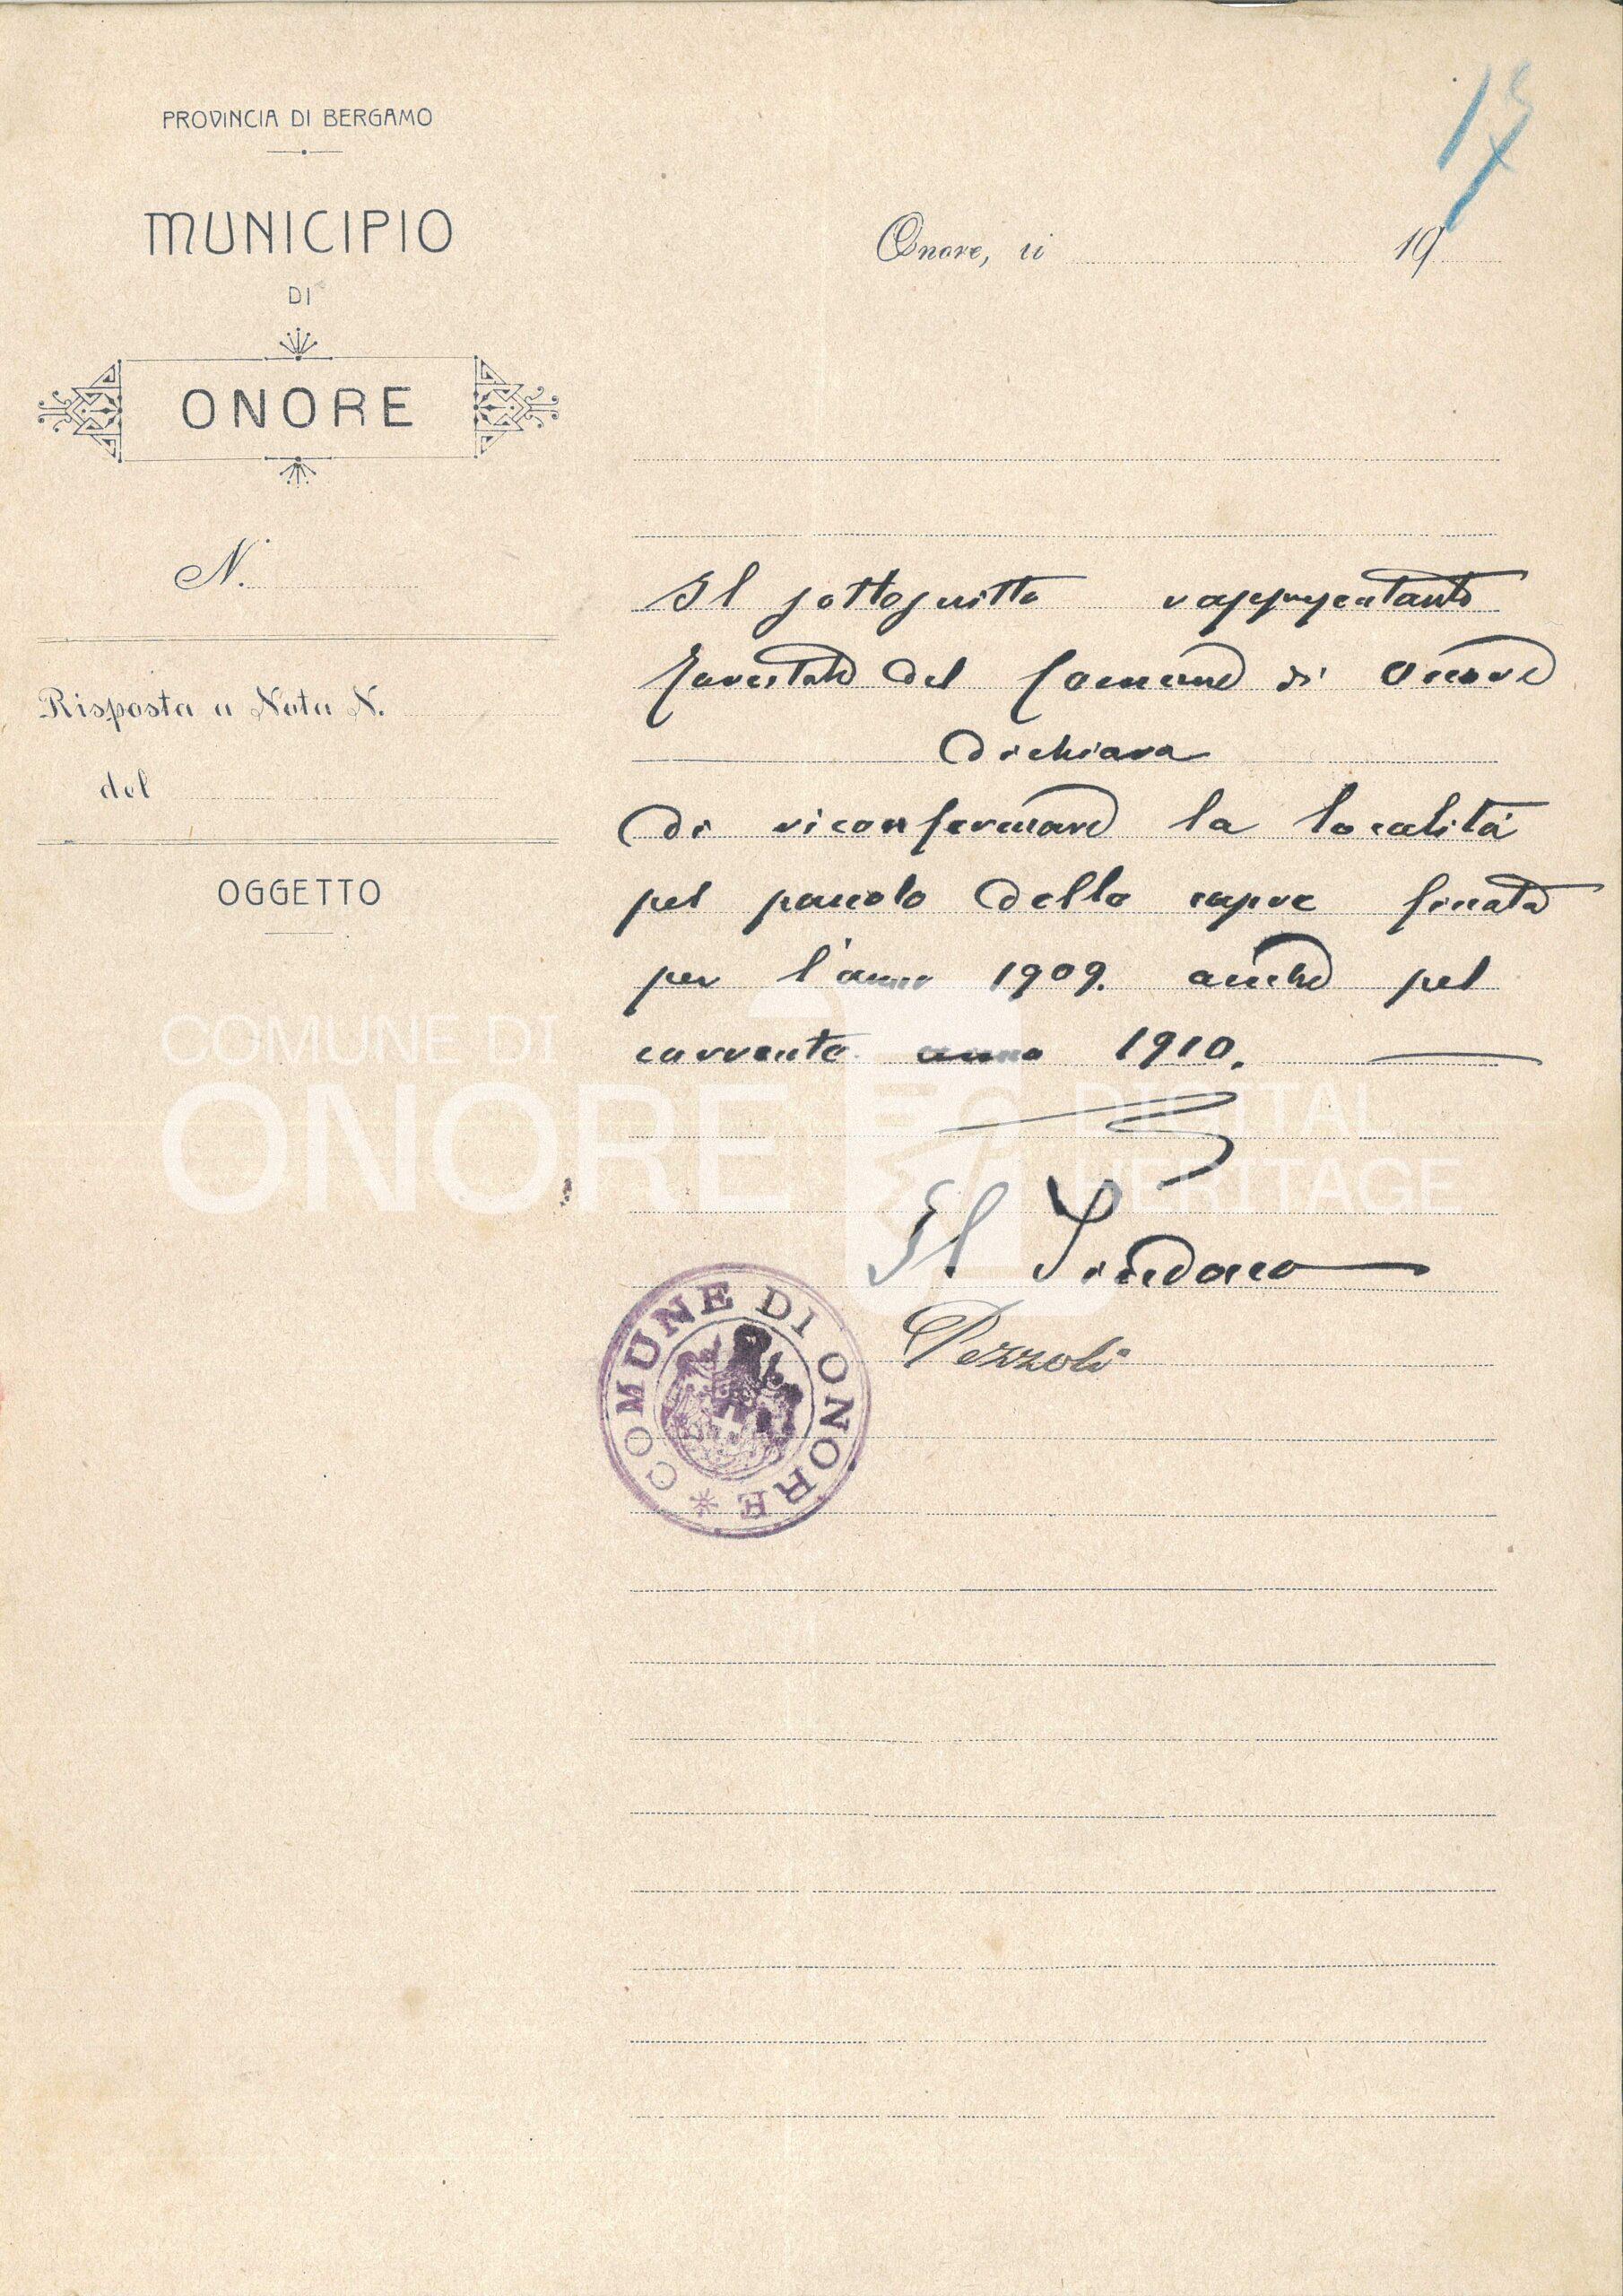 PROVINCIA DI BERGAMO
MUNICIPIO
DI
ONORE
N.
Risposta a Nota N.
del
OGGETTO
Onore, li 19
Il sottoscritto rappresentante
del Comune di Onore
dichiara
di riconfermare la località
pel pascolo delle capre fissata
per l'anno 1909. anche pel
corrente anno 1910.
Il Sindaco
Pezzoli
COMUNE DI ONORE *
COMUNE DI
ONORE
DIGITAL
HERITAGE